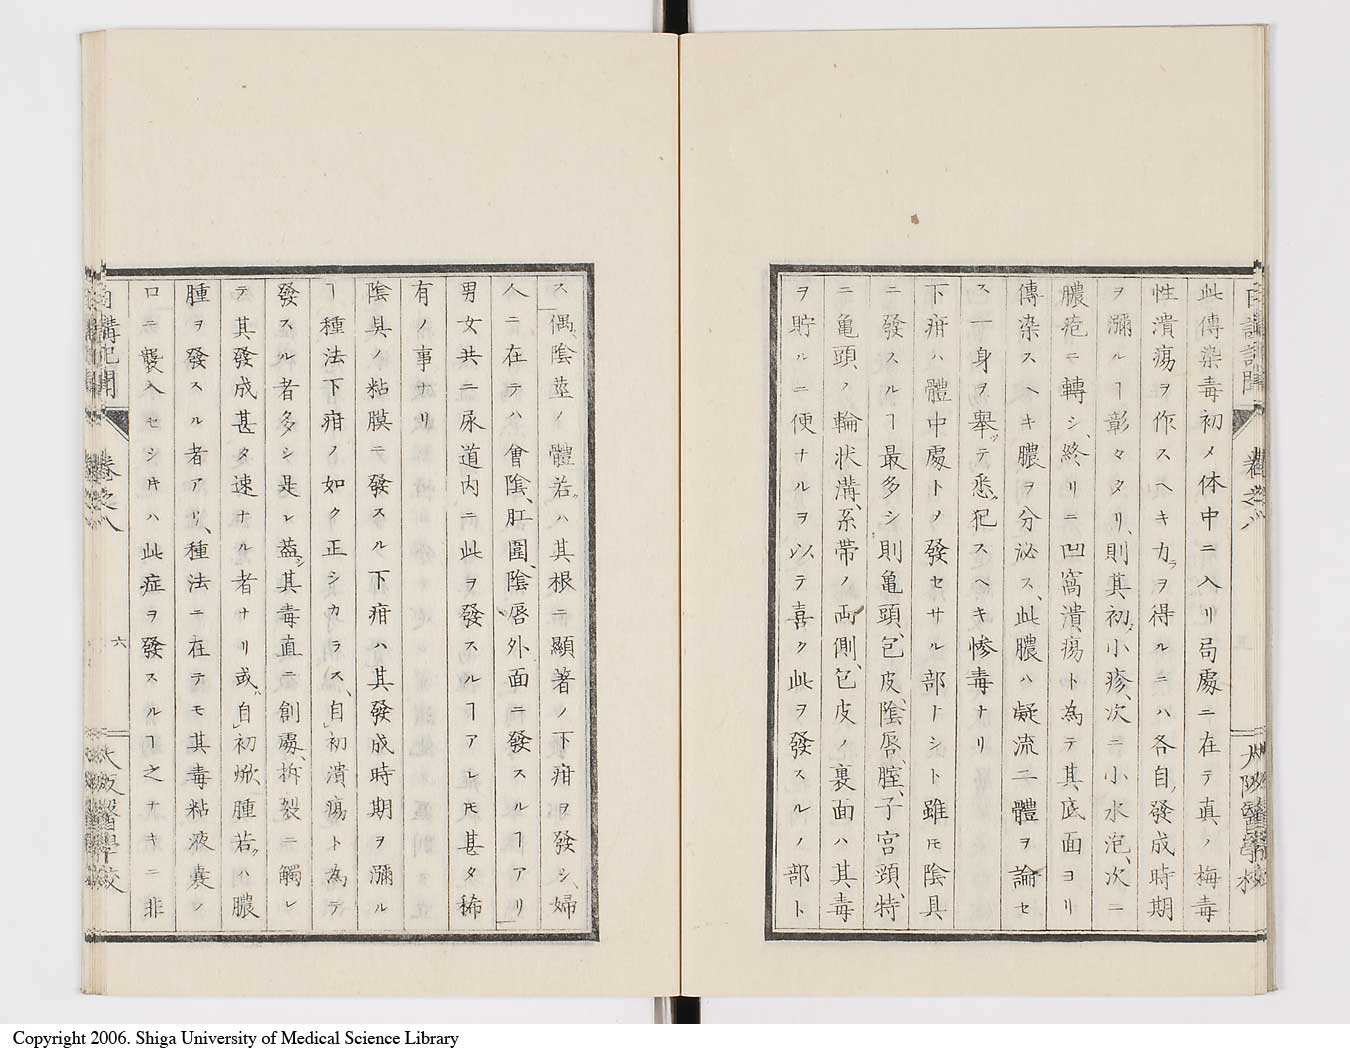 日講記聞 卷之八 大阪醫學校
此傳染毒初メ体中ニ入リ局處ニ在テ真ノ梅毒
性潰瘍ヲ作スヘキカラヲ得ルニハ各自發成時期
ヲ彌ルヿ彰々タリ、則其初小疹、次ニ小水泡、次ニ
膿疱ニ轉シ、終リニ凹窩潰瘍ト為テ其底面ヨリ
傳染スヘキ膿ヲ分泌ス、此膿ハ凝流二體ヲ論セ
ス一身ヲ舉ッテ悉ク犯スヘキ慘毒ナリ
下疳ハ體中處トノ發セサル部トシト雖モ陰具
ニ發スルヿ最多シ則亀頭、包皮、陰唇、腟、子宮頸、特
ニ亀頭ノ輪状溝、系帶ノ両側、包皮ノ裏面ハ其毒
ヲ貯ルニ便ナルヲ以テ喜ク此ヲ發スルノ部ト
ス偶陰莖ノ體若クハ其根ニ顯著ノ下疳ヲ發シ、婦
人ニ在テハ會陰、肛圍、陰唇外面ニ發スルヿアリ
男女共ニ尿道内ニ此ヲ發スルヿアレ𪜈甚タ稀
有ノ事ナリ
陰具ノ粘膜ニ發スル下疳ハ其發成時期ヲ彌ル
ヿ種法下疳ノ如ク正シカラス、自初潰瘍ト為テ
發スル者多シ是レ蓋シ其毒直ニ創處、拆裂ニ觸レ
テ其發成甚タ速ナル者ナリ或ハ自初焮腫若クハ膿
腫ヲ發スル者アリ、種法ニ在テモ其毒粘液囊ノ
口ニ襲入セシ𪜈ハ此症ヲ發スルヿ之ナキニ非
日講記聞 卷之八 六 大阪醫學校
Copyright 2006. Shiga University of Medical Science Library